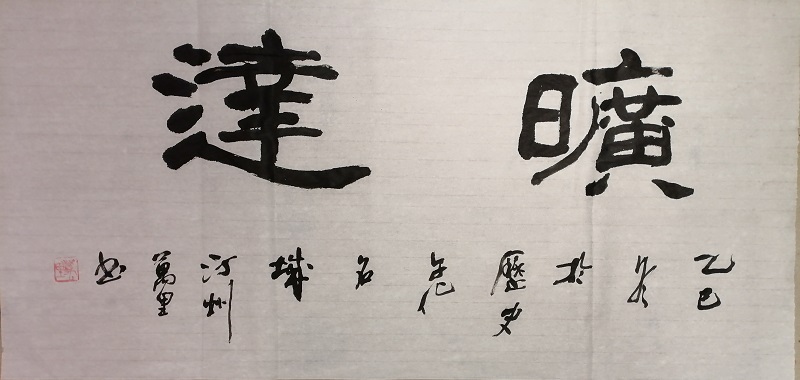 曠達
乙巳冬於歷史文化名城河州萬里书